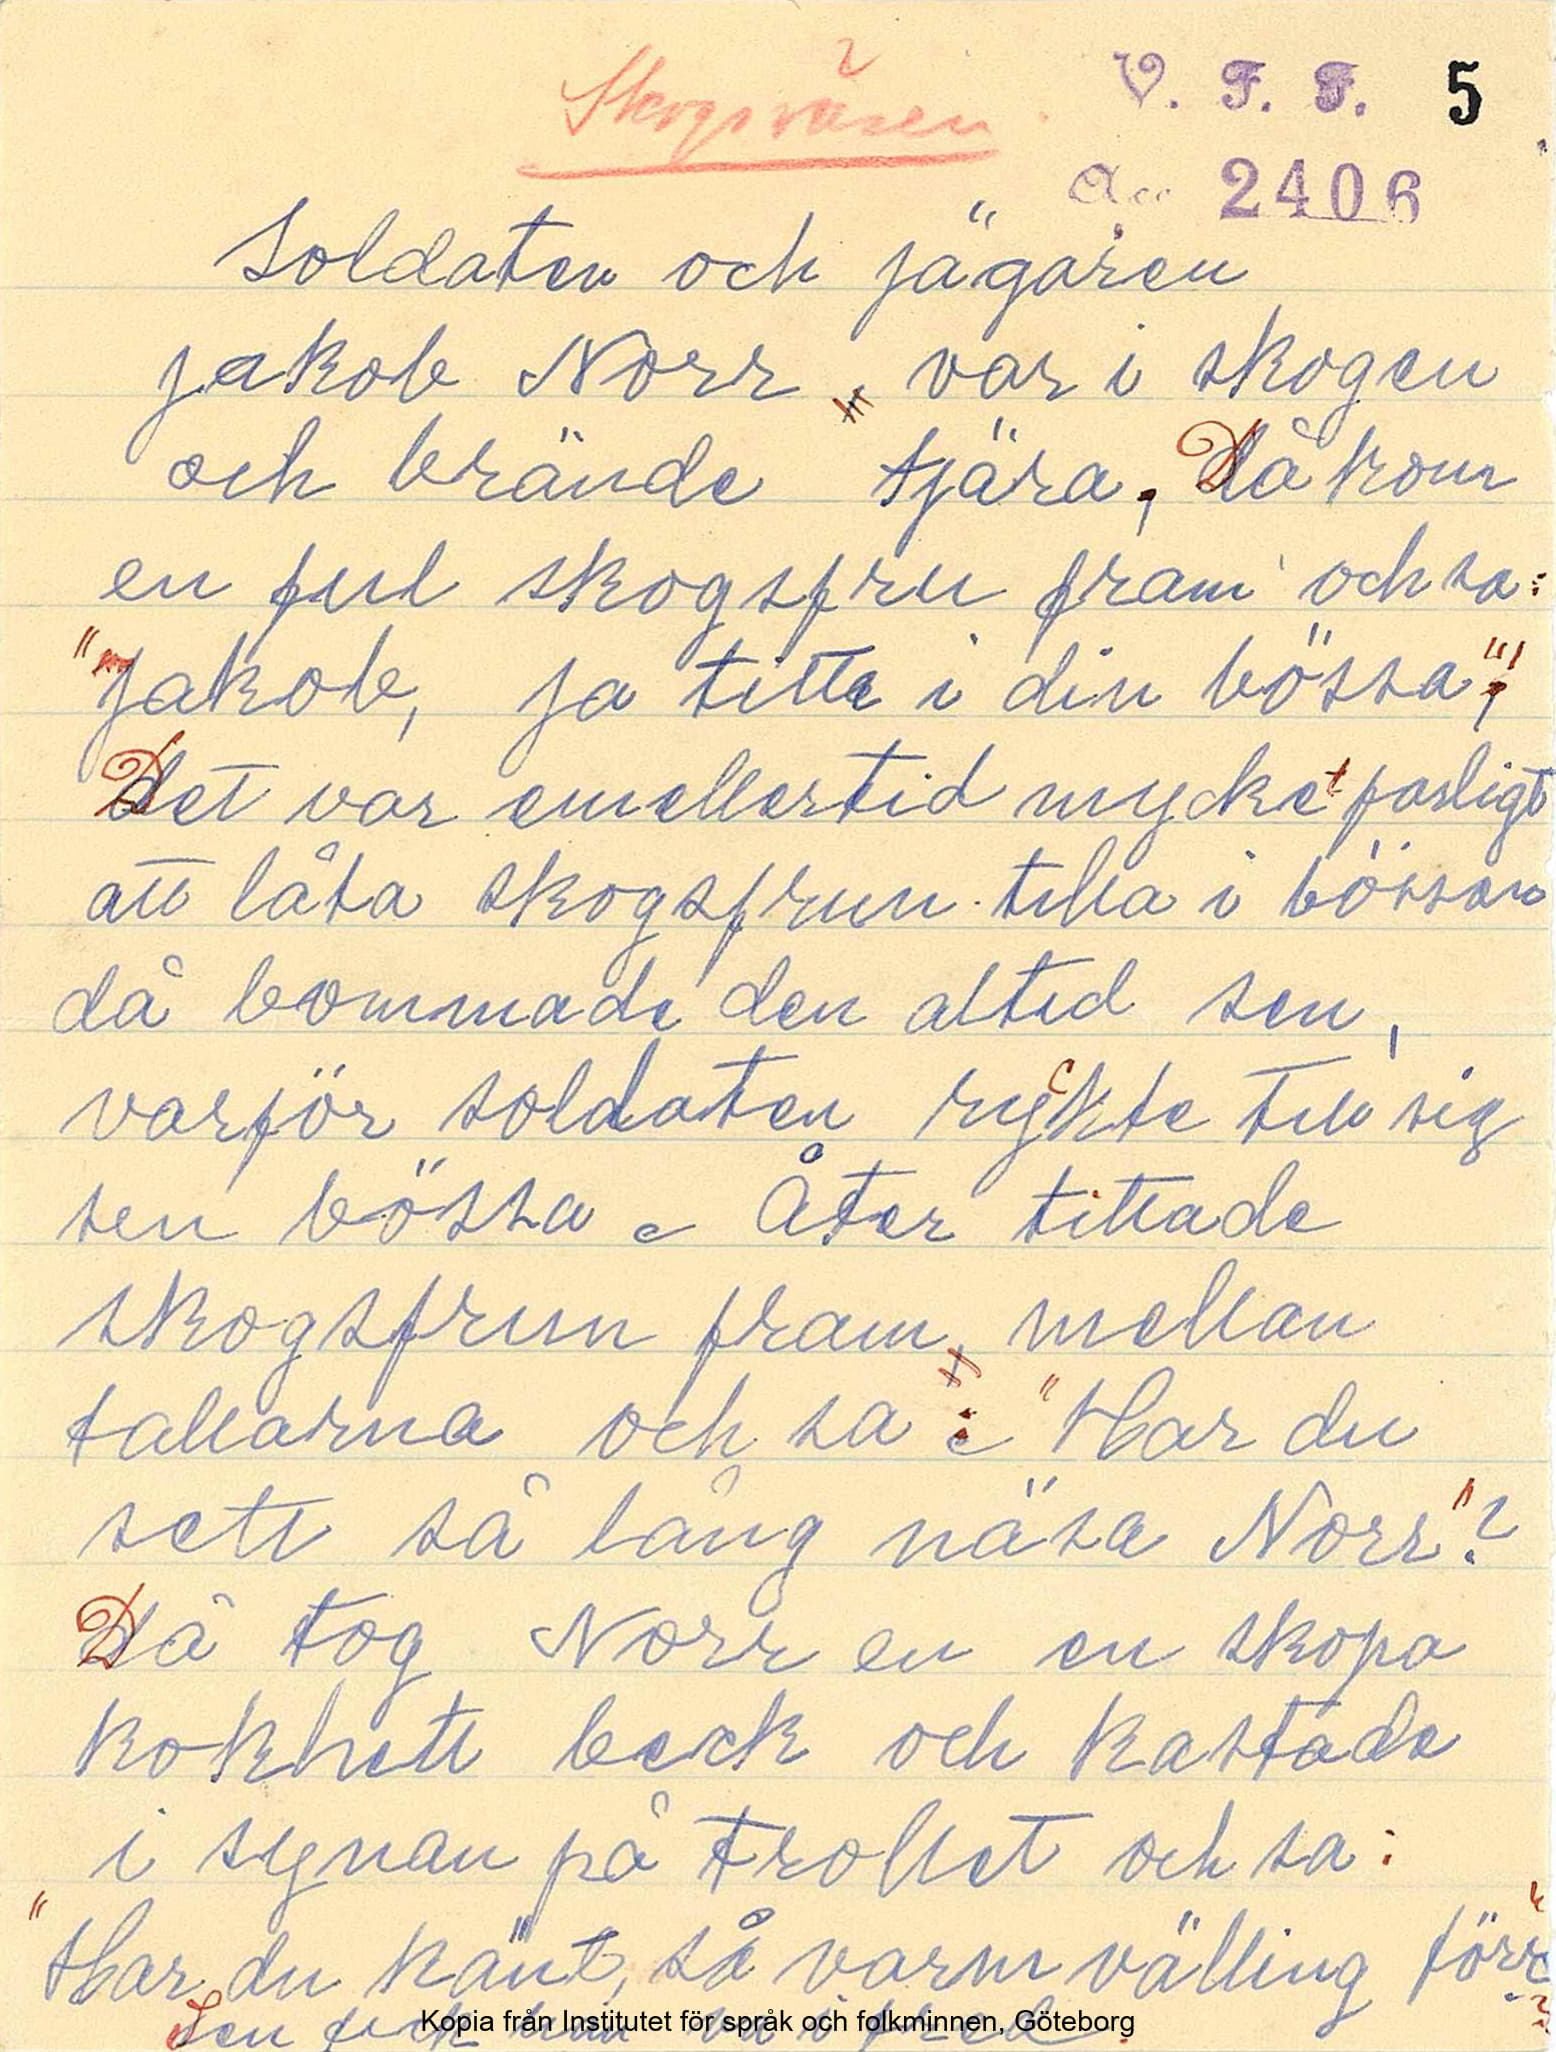 Skogsväsen
V. F. F. 5
Acc 2406
Soldaten och jägaren
Jakob Norr var i skogen
och brände tjära. Då kom
en ful skogsfru fram och sa:
"Jakob, ja titta i din bössa"!
Det var emellertid mycket farligt
att låta skogsfrun titta i bössan
då bommade den altid sen,
varför soldaten ryckte till sig
sen bössa. Åter tittade
skogsfrun fram mellan
tallarna och sa: "Har du
sett så lång näsa Norr"?
Då tog Norr en en skopa
kokhett beck och kastade
i synan på trollet och sa:
"Har du känt, så varm välling förr"?
Sen fick han va i fred.
Kopia från Institutet för språk och folkminnen, Göteborg